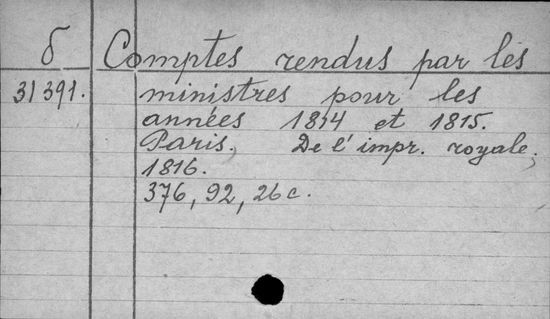 б Comptes rendus par les
31391. ministres pour les
années 1814 et 1815.
Paris. De l'impr. royale,
1816.
376, 92, 26 c.